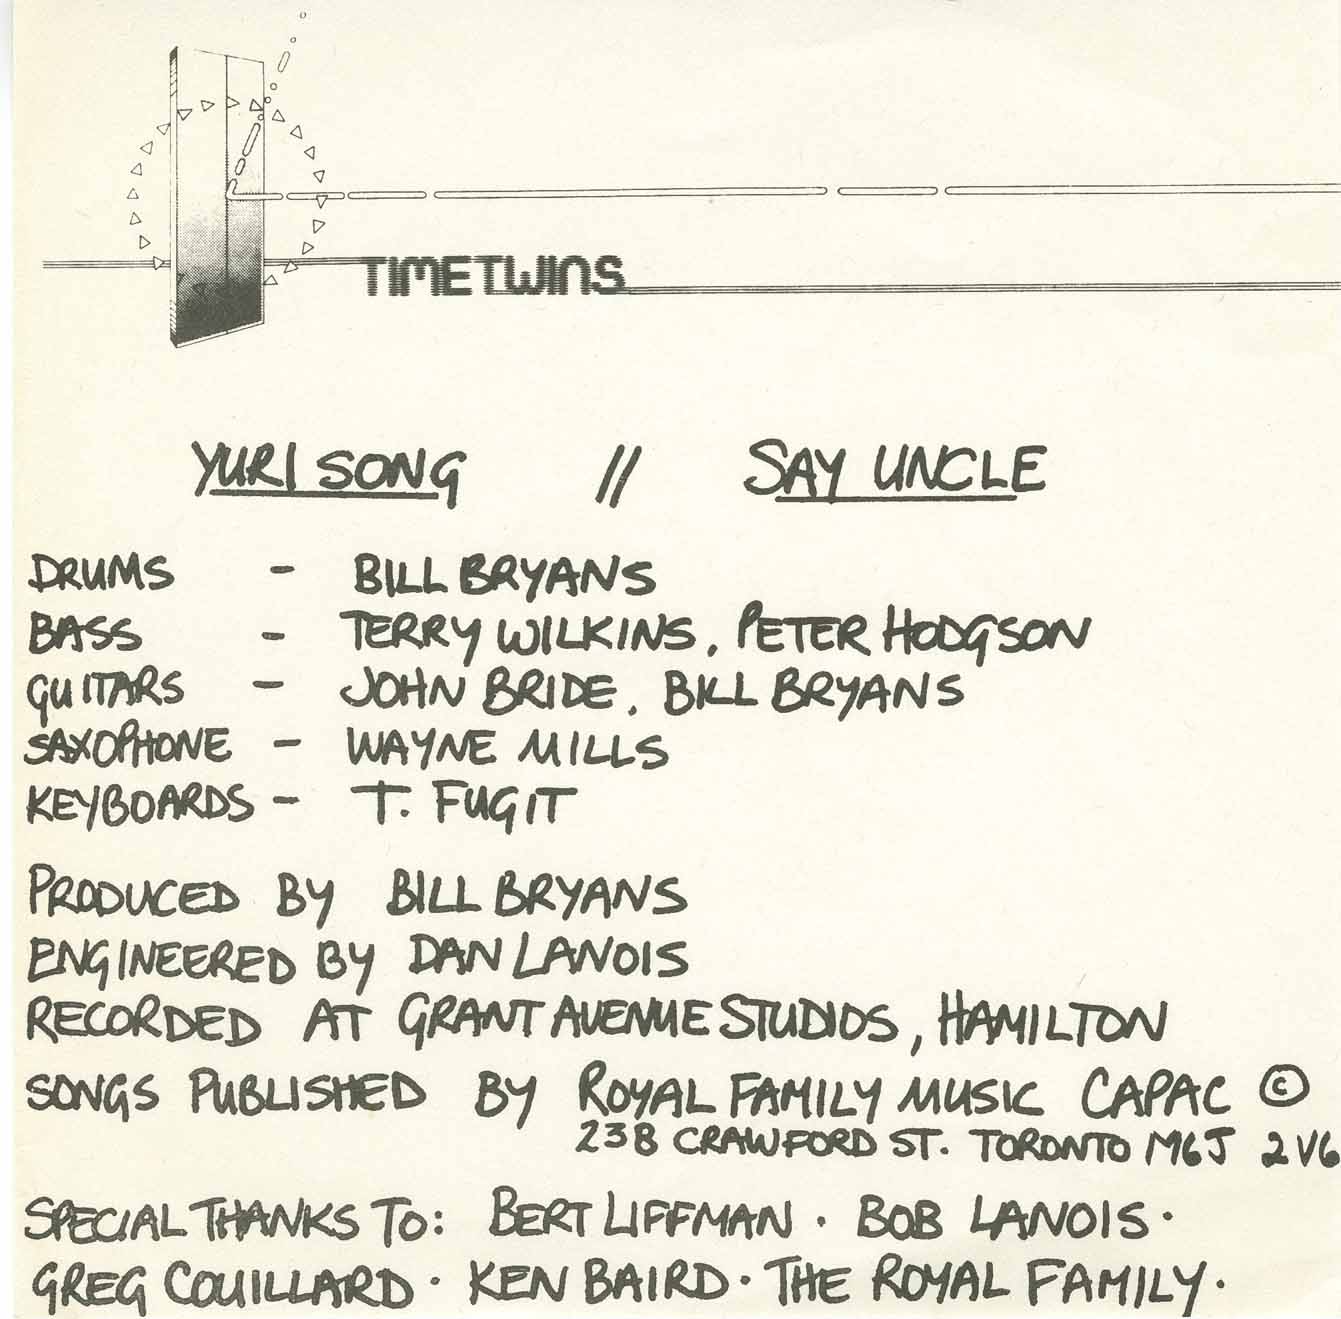 TIMETWINS
YURI SONG // SAY UNCLE
DRUMS - BILL BRYANS
BASS - TERRY WILKINS, PETER HODGSON
GUITARS - JOHN BRIDE, BILL BRYANS
SAXOPHONE - WAYNE MILLS
KEYBOARDS - T. FUGIT
PRODUCED BY BILL BRYANS
ENGINEERED BY DAN LANOIS
RECORDED AT GRANT AVENUE STUDIOS, HAMILTON
SONGS PUBLISHED BY ROYAL FAMILY MUSIC CAPAC ©
238 CRAWFORD ST. TORONTO M6J 2V6
SPECIAL THANKS TO: BERT LIFFMAN · BOB LANOIS ·
GREG COUILLARD · KEN BAIRD · THE ROYAL FAMILY ·